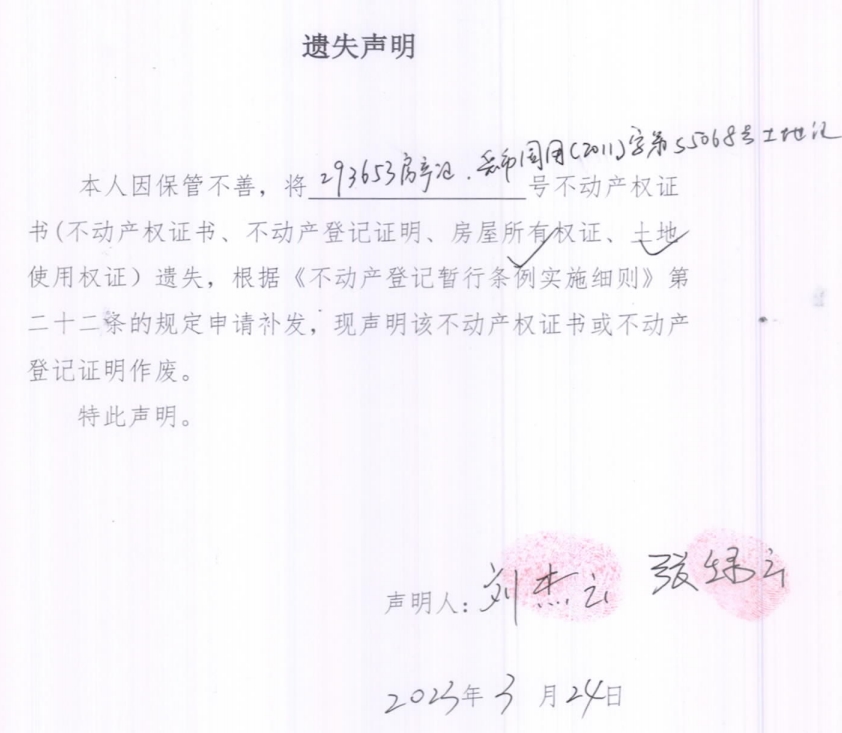 遗失声明
本人因保管不善，将293653房产证、岳市国用(2011)字第55068号土地证号不动产权证
书(不动产权证书、不动产登记证明、房屋所有权证、土地
使用权证）遗失，根据《不动产登记暂行条例实施细则》第
二十二条的规定申请补发，现声明该不动产权证书或不动产
登记证明作废。
特此声明。
声明人：刘杰云 张绿云
2023年3月24日